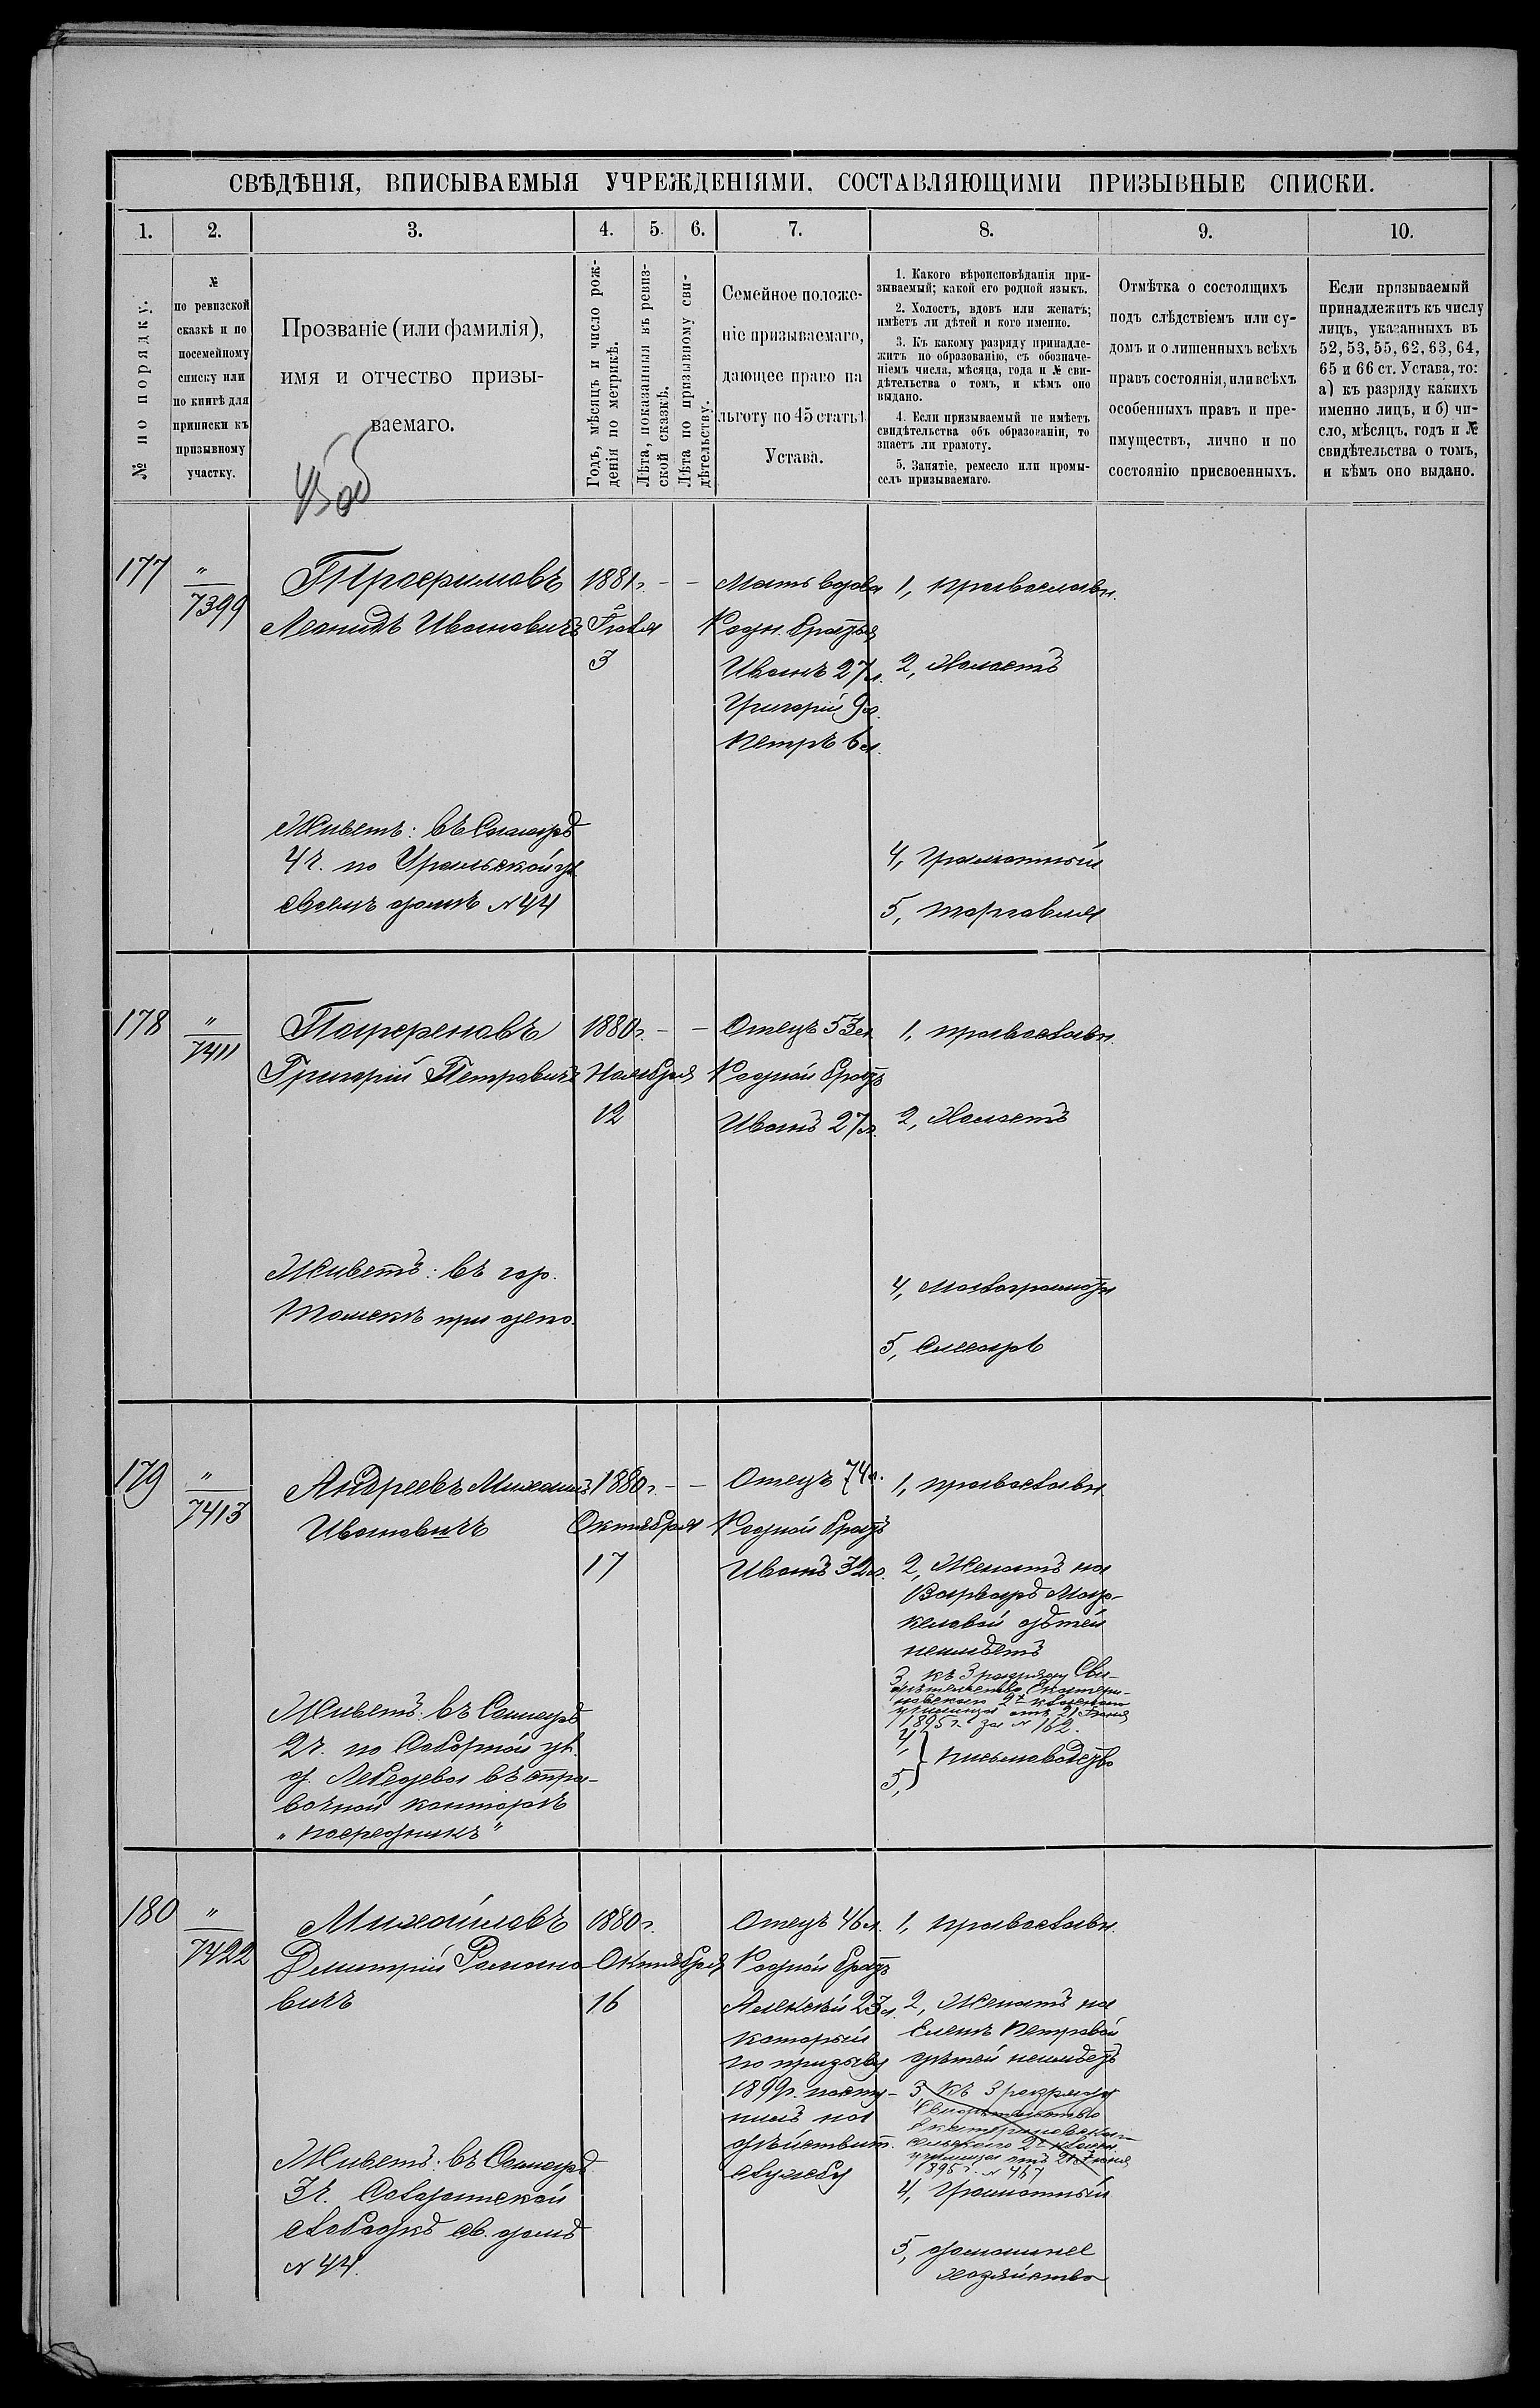 СВѢДѢНІЯ, ВПИСЫВАЕМЫЯ УЧРЕЖДЕНІЯМИ, СОСТАВЛЯЮЩИМИ ПРИЗЫВНЫЕ СПИСКИ.
1. 2. 3. 4. 5. 6. 7. 8. 9. 10.
№ по порядку.
№
по ревизской
сказкѣ и по
посемейному
списку или
по книгѣ для
приписки къ
призывному
участку.
Прозваніе (или фамилія),
имя и отчество призы-
ваемаго.
Годъ, мѣсяцъ и число рож-
денія по метрикѣ.
Лѣта, показанныя въ ревиз-
ской сказкѣ.
Лѣта по призывному сви-
дѣтельству.
Семейное положе-
ніе призываемаго,
дающее право на
льготу по 45 статьѣ
Устава.
1. Какого вѣроисповѣданія при-
зываемый; какой его родной языкъ.
2. Холостъ, вдовъ или женатъ;
имѣетъ ли дѣтей и кого именно.
3. Къ какому разряду принадле-
житъ по образованію, съ обозначе-
ніемъ числа, мѣсяца, года и № сви-
дѣтельства о томъ, и кѣмъ оно
выдано.
4. Если призываемый не имѣетъ
свидѣтельства объ образованіи, то
знаетъ ли грамоту.
5. Занятіе, ремесло или промы-
селъ призываемаго.
Отмѣтка о состоящихъ
подъ слѣдствіемъ или су-
домъ и о лишенныхъ всѣхъ
правъ состоянія, или всѣхъ
особенныхъ правъ и пре-
имуществъ, лично и по
состоянію присвоенныхъ.
Если призываемый
принадлежитъ къ числу
лицъ, указанныхъ въ
52, 53, 55, 62, 63, 64,
65 и 66 ст. Устава, то:
а) къ разряду какихъ
именно лицъ, и б) чи-
сло, мѣсяцъ, годъ и №
свидѣтельства о томъ,
и кѣмъ оно выдано.
177
"
7399
Трофимовъ
Леонидъ Ивановичъ
Живетъ: въ Самарѣ
4 ч. по Уральской ул.
своемъ домѣ № 44
1881 г. - -
Іюля
3
Мать вдова
Родн. братья
Иванъ 27 л.
Григорій 9 л.
Петръ 6 л.
1, православн.
2, Холостъ
4, Грамотный
5, торговля
178
"
7411
Григорій Петровичъ
Живетъ: въ гор.
Томскѣ при депо.
1880 г. - -
Ноября
12
Отецъ 53 л.
Родной братъ
Иванъ 27 л.
1, православн.
2, Холостъ
4, Малограмотн
5, Слесарь
179
"
7413
Андреевъ Михаилъ
Ивановичъ
Живетъ: въ Самарѣ
2 ч. по Соборной ул.
д. Лебедева въ спра-
вочной конторѣ
„Посредникъ"
1880 г. - -
Октября
17
Отецъ 74 л.
Родной братъ
Иванъ 32 л.
1, православн.
2, Женатъ на
Варварѣ Мар-
келовой дѣтей
неимѣетъ
3, къ 3 разряду Сви-
дѣтельство Екатери-
новскаго 2х класснаго
училища отъ 21 Іюня
1895 г. за № 162.
4,
5, } письмоводство
180
"
7422
Михайловъ
Дмитрій Романо-
вичъ
Живетъ: въ Самарѣ
3 ч. Солдатской
слободкѣ св. домѣ
№ 44.
1880 г.
Октября
16
Отецъ 46 л.
Родной братъ
Алексѣй 23 л.
который
по призыву
1899 г. посту-
пилъ на
дѣйствит.
службу
1, православн.
2, Женатъ на
Еленѣ Петровой
дѣтей неимѣетъ
3 Къ 3 разряду
Свидѣтельство
училища отъ 21 Іюня
1895 г. № 467
4, Грамотный
5, домашнее
хозяйство